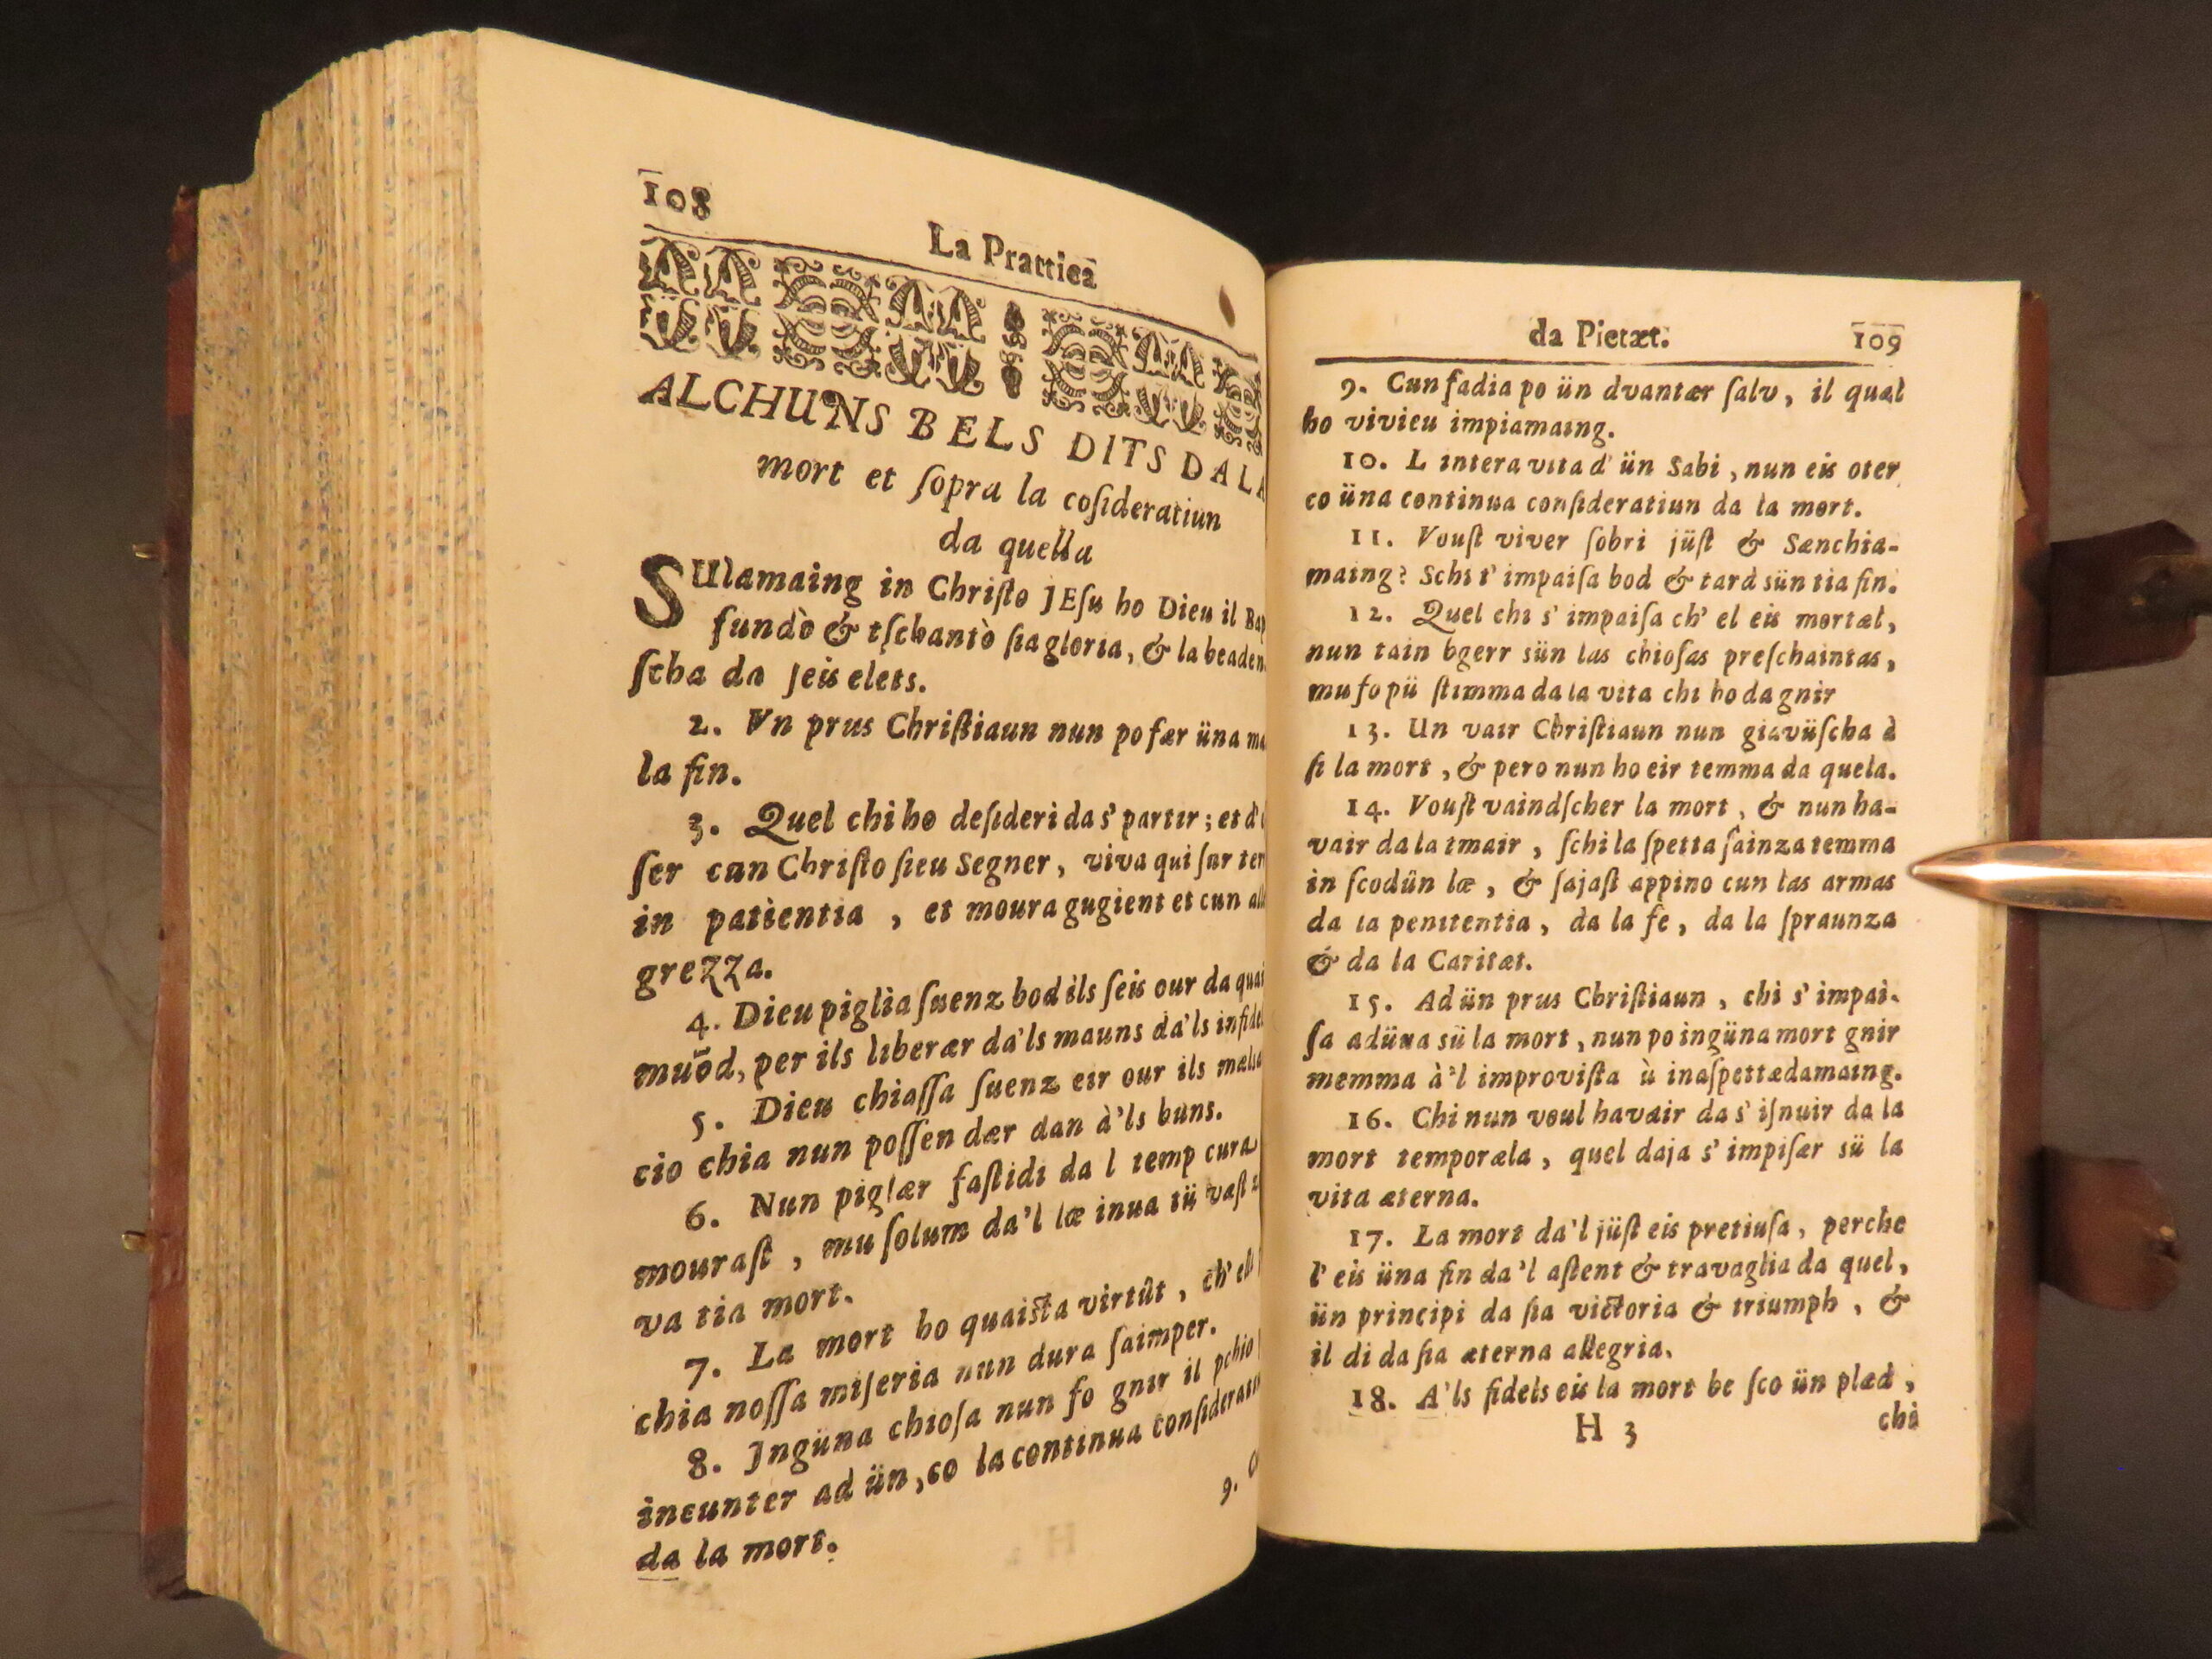 108
La Prattica
ALCHUNS BELS DITS DALA
mort et ſopra la coſideratiun
da quella
SUlamaing in Chriſto JEſu ho Dieu il
fundò & tſchantò ſia gloria, & la beaden
ſcha da ſeis elets.
2. Vn prus Chriſtiaun nun po fær üna ma
la fin.
3. Quel chi ho deſideri da s' partir ; et d'
ſer cun Chriſto ſieu Segner, viva qui ſur
in patientia , et moura gugient et cun al
grezza.
4. Dieu piglia ſuenz bod ils ſeis our da
muōd, per ils liberær da'ls mauns da'ls infidel
5. Dieu chiaſſa ſuenz eir our ils
cio chia nun poſſen dær dan à'ls buns.
6. Nun piglær faſtidi da l temp cura
mouraſt , mu ſolum da'l læ inua tü vaſt
va tia mort.
7. La mort ho quaiſta virtût , ch' ell
chia noſſa miſeria nun dura ſaimper.
8. Ingüna chioſa nun fo gnir il pchio
incunter ad ün, co la continua conſiderati
da la mort.
9.
da Pietæt.
109
9. Cun fadia po ün dvantær ſalv, il quæl
ho vivieu impiamaing.
10. L intera vita d' ün Sabi , nun eis oter
co üna continua conſideratiun da la mort.
11. Vouſt viver ſobri jüſt & Sænchia-
maing? Schi t' impaiſa bod & tard sün tia fin.
12. Quel chi s' impaiſa ch' el eis mortæl,
nun tain bgerr sün las chioſas preſchaintas,
mu fo pü ſtimma da la vita chi ho da gnir
13. Un vair Chriſtiaun nun giavüſcha à
ſi la mort , & pero nun ho eir temma da quela.
14. Vouſt vaindſcher la mort , & nun ha-
vair da la tmair , ſchi la ſpetta ſainza temma
in ſcodün læ , & ſajaſt appino cun las armas
da la penitentia , da la fe , da la ſpraunza
& da la Caritæt.
15. Ad ün prus Chriſtiaun , chi s' impai-
ſa adüna sü la mort , nun po ingüna mort gnir
memma à'l improviſta ù inaſpettædamaing.
16. Chi nun voul havair da s' iſnuir da la
mort temporæla , quel daja s' impiſær sü la
vita æterna.
17. La mort da'l jüſt eis pretiuſa, perche
l' eis üna fin da'l aſtent & travaglia da quel,
ün principi da ſia victoria & triumph , &
il di da ſia æterna allegria.
18. A'ls fidels eis la mort be ſco ün plæd ,
H 3
chi